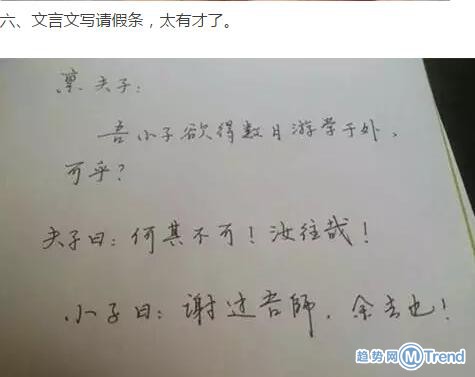 六、文言文写请假条，太有才了。
禀夫子：
吾小子欲得数日游学于外，
可乎？
夫子曰：何其不可！汝往哉！
小子曰：谢过吾師，余去也！
趋势网 M Trend